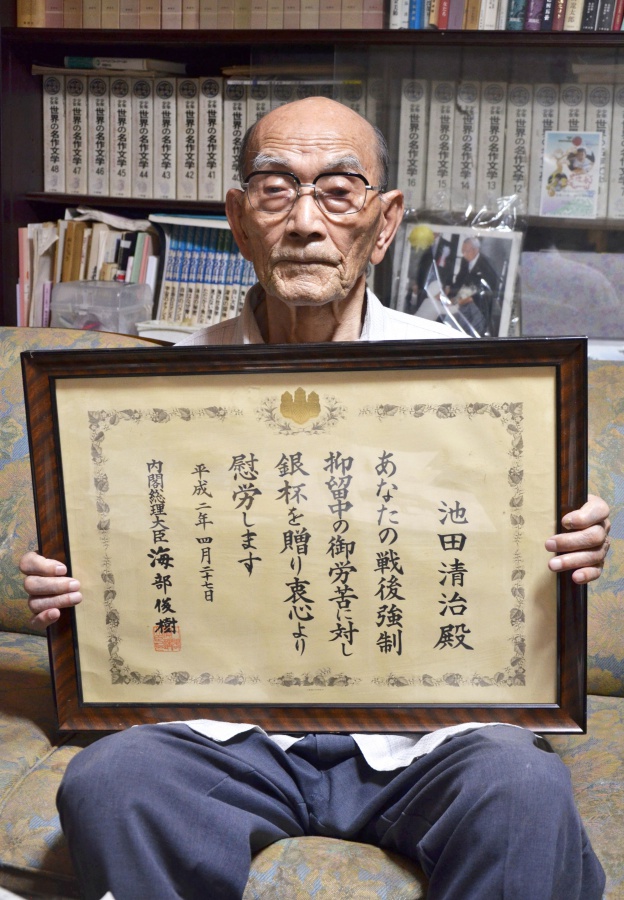 池田清治殿
あなたの戦後強制
抑留中の御労苦に対し
銀杯を贈り衷心より
慰労します
平成二年四月二十七日
内閣総理大臣 海部俊樹
世界の名作文学 48
世界の名作文学 47
世界の名作文学 46
世界の名作文学 45
世界の名作文学 44
世界の名作文学 43
世界の名作文学 42
世界の名作文学 41
世界の名作文学 16
世界の名作文学 15
世界の名作文学 14
世界の名作文学 13
世界の名作文学 12